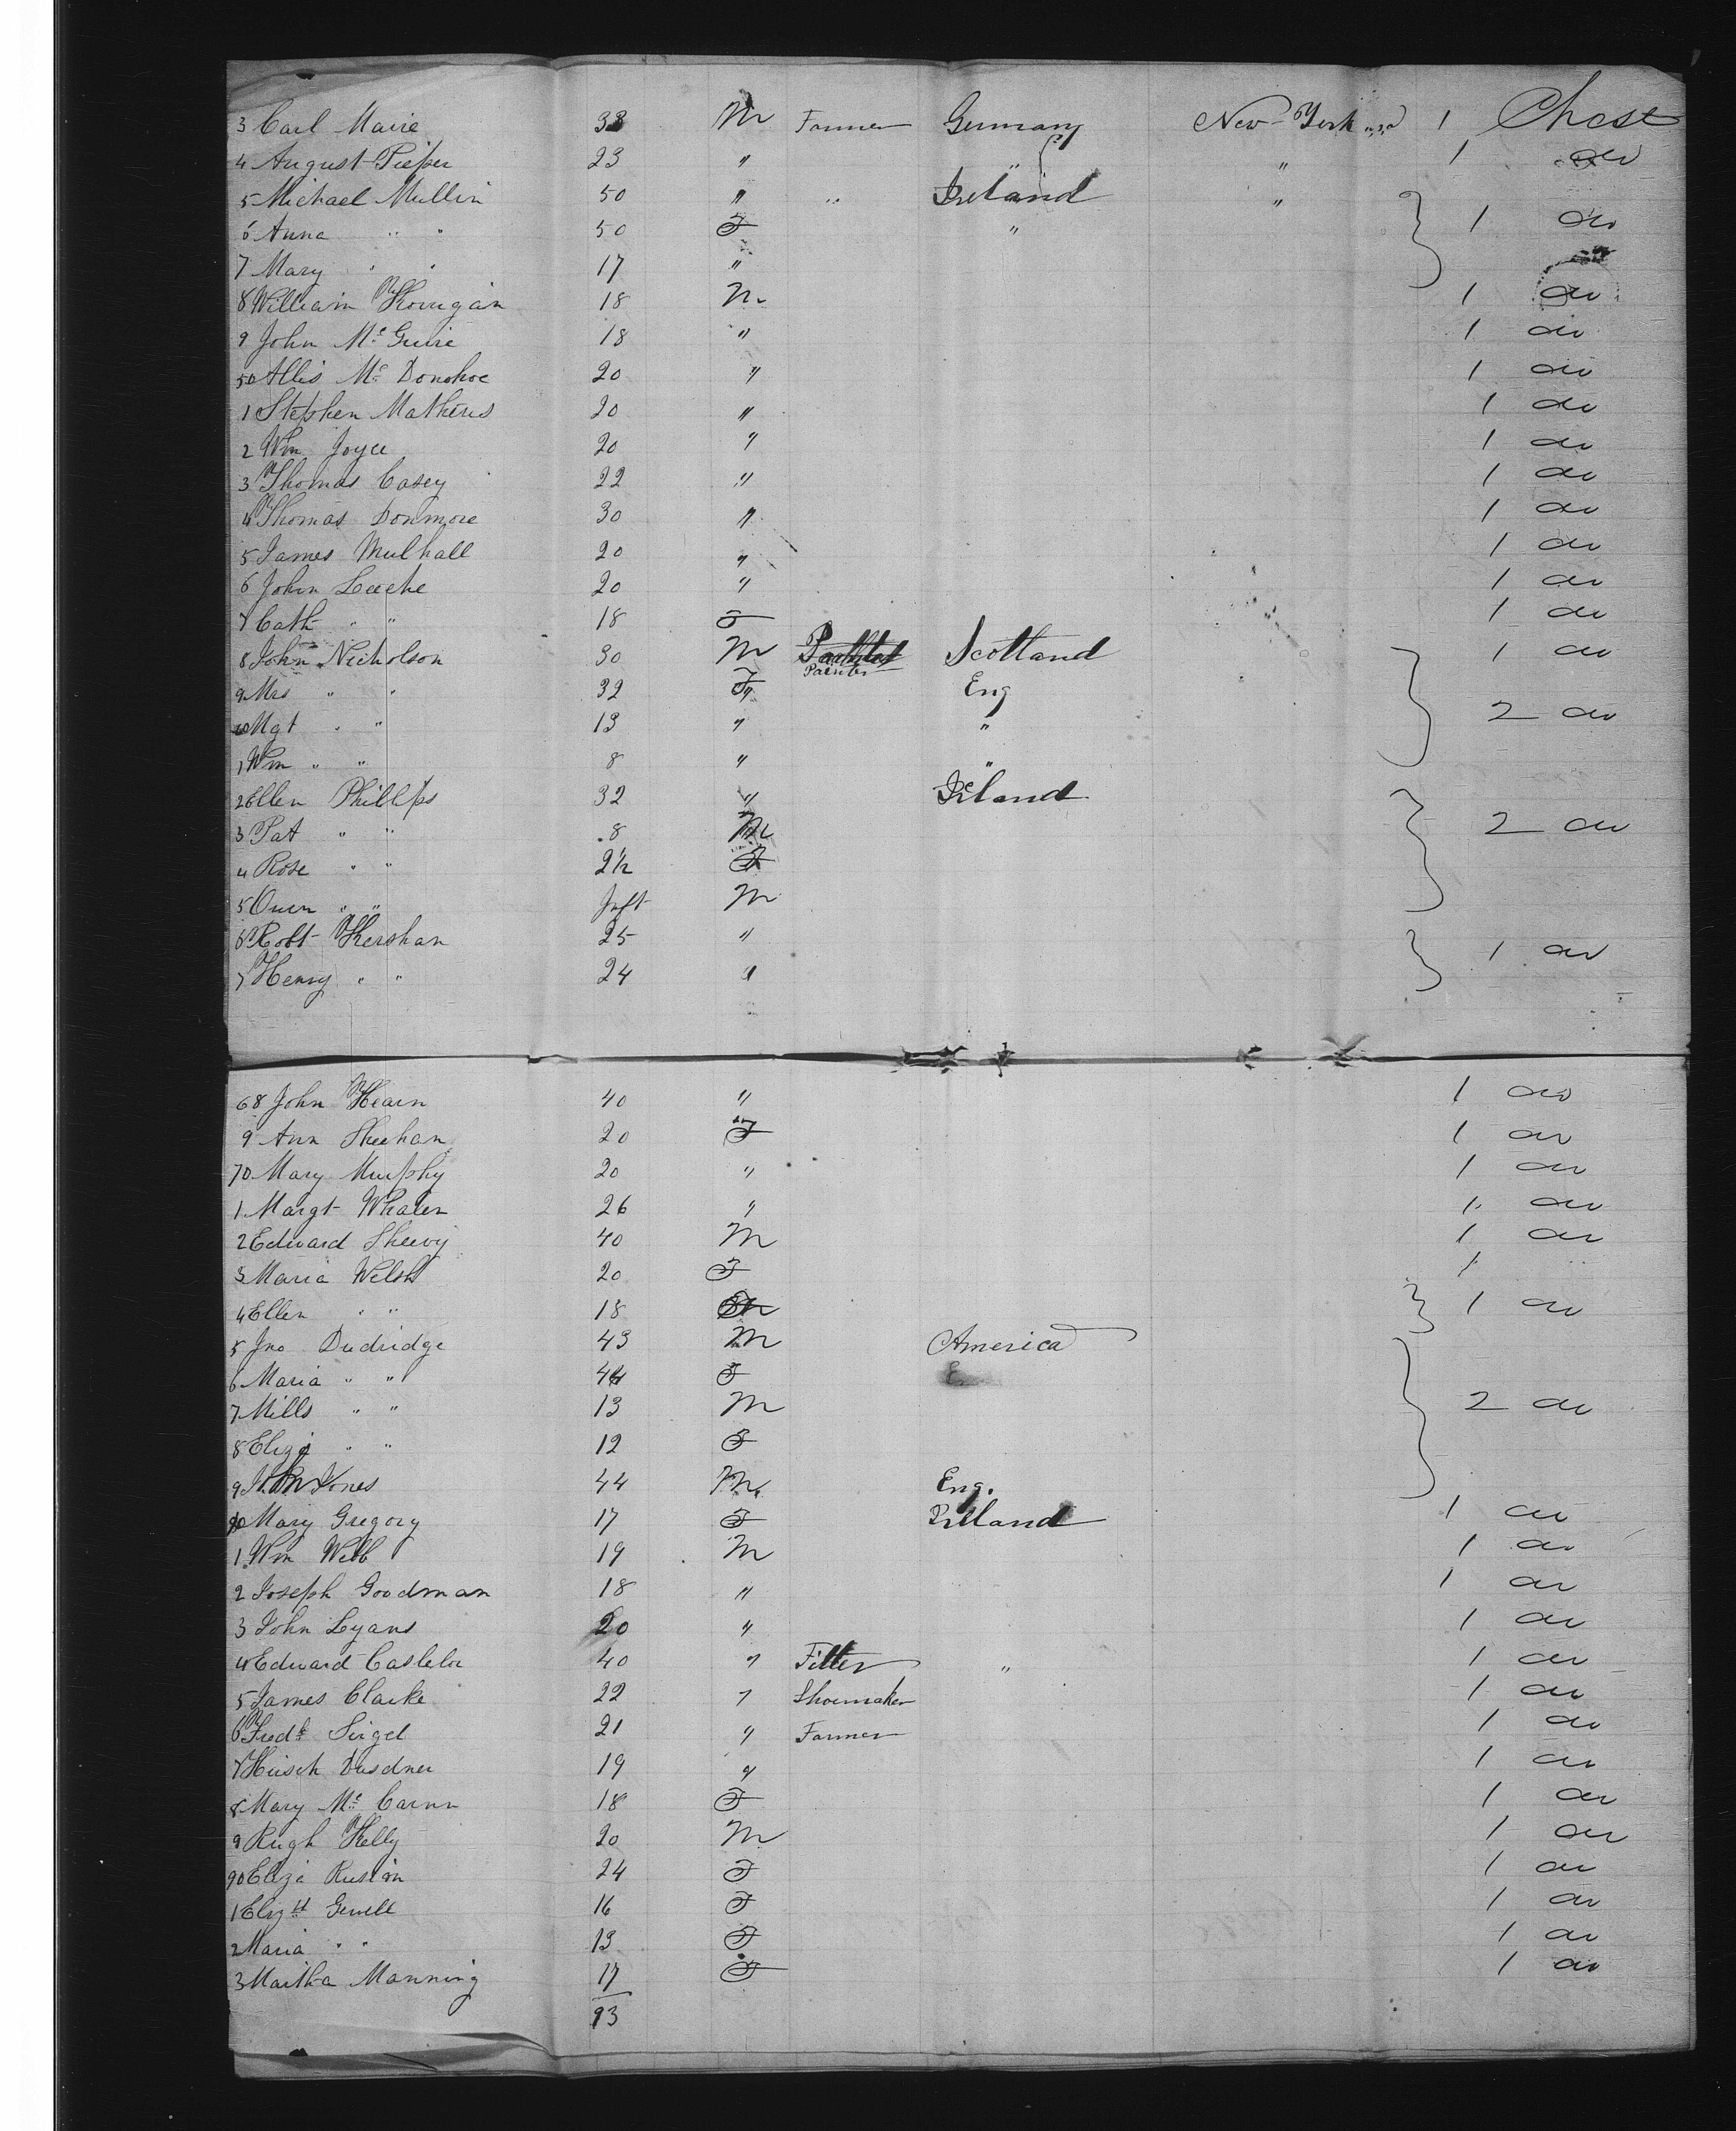 3 Carl Maire 33 M Farmer Germany New York 1 Chest
4 August Pieper 23 " " " 1 do
5 Michael Mullin 50 " " Ireland "
6 Anna " " 50 F " 1 do
7 Mary " " 17 "
8 William 18 M 1 do
9 John Mc Guire 18 " 1 do
50 Allis Mc Donohoe 20 " 1 do
1 Stephen Matheus 20 " 1 do
2 Wm Joyce 20 " 1 do
3 Thomas Casey 22 " 1 do
4 Thomas Donmore 30 " 1 do
5 James Mulhall 20 " 1 do
6 John Leeche 20 " 1 do
7 Cath " " 18 F 1 do
8 John Nicholson 30 M Painter Scotland 1 do
9 Mrs " " 32 F Eng
60 Mgt " " 13 " " 2 do
1 Wm " " 8 " "
2 Ellen Phillips 32 " Ireland
3 Pat " " 8 M 2 do
4 Rose " " 2½ F
5 Owen " " Inft M
6 Robt Kershan 25 " 1 do
7 Henry " " 24 "
68 John Hearn 40 " 1 do
9 Ann Sheehan 20 F 1 do
70 Mary Murphy 20 " 1 do
1 Margt Whalen 26 " 1 do
2 Edward Sheevy 40 M 1 do
3 Maria Welsh 20 F 1
4 Ellen " " 18 1 do
5 Jno Dudridge 43 M America
6 Maria " " 44 F
7 Mills " " 13 M 2 do
8 Eliza " " 12 F
9 John Jones 44 M Eng.
80 Mary Gregory 17 F Ireland 1 do
1 Wm Webb 19 M 1 do
2 Joseph Goodman 18 " 1 do
3 John Lyans 20 " 1 do
4 Edward 40 " Fitter " 1 do
5 James Clarke 22 " Shoemaker 1 do
6 Fredk Sirgel 21 " Farmer 1 do
7 Hirsch Dusdner 19 " 1 do
8 Mary Mc Cann 18 F 1 do
9 Hugh Kelly 20 M 1 do
90 Eliza 24 F 1 do
1 Elizth 16 F 1 do
2 Maria " " 13 F 1 do
3 Martha Manning 17 F 1 do
93